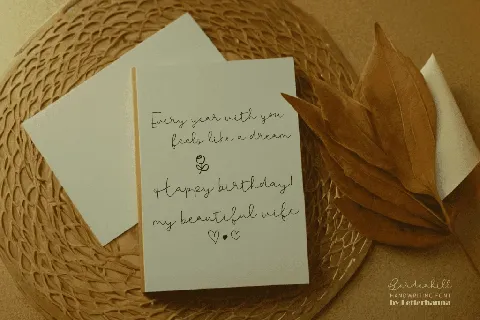 Every year with you
feels like a dream
Happy birthday!
my beautiful wife
Gardenhill
HANDWRITING FONT
by Letterhanna